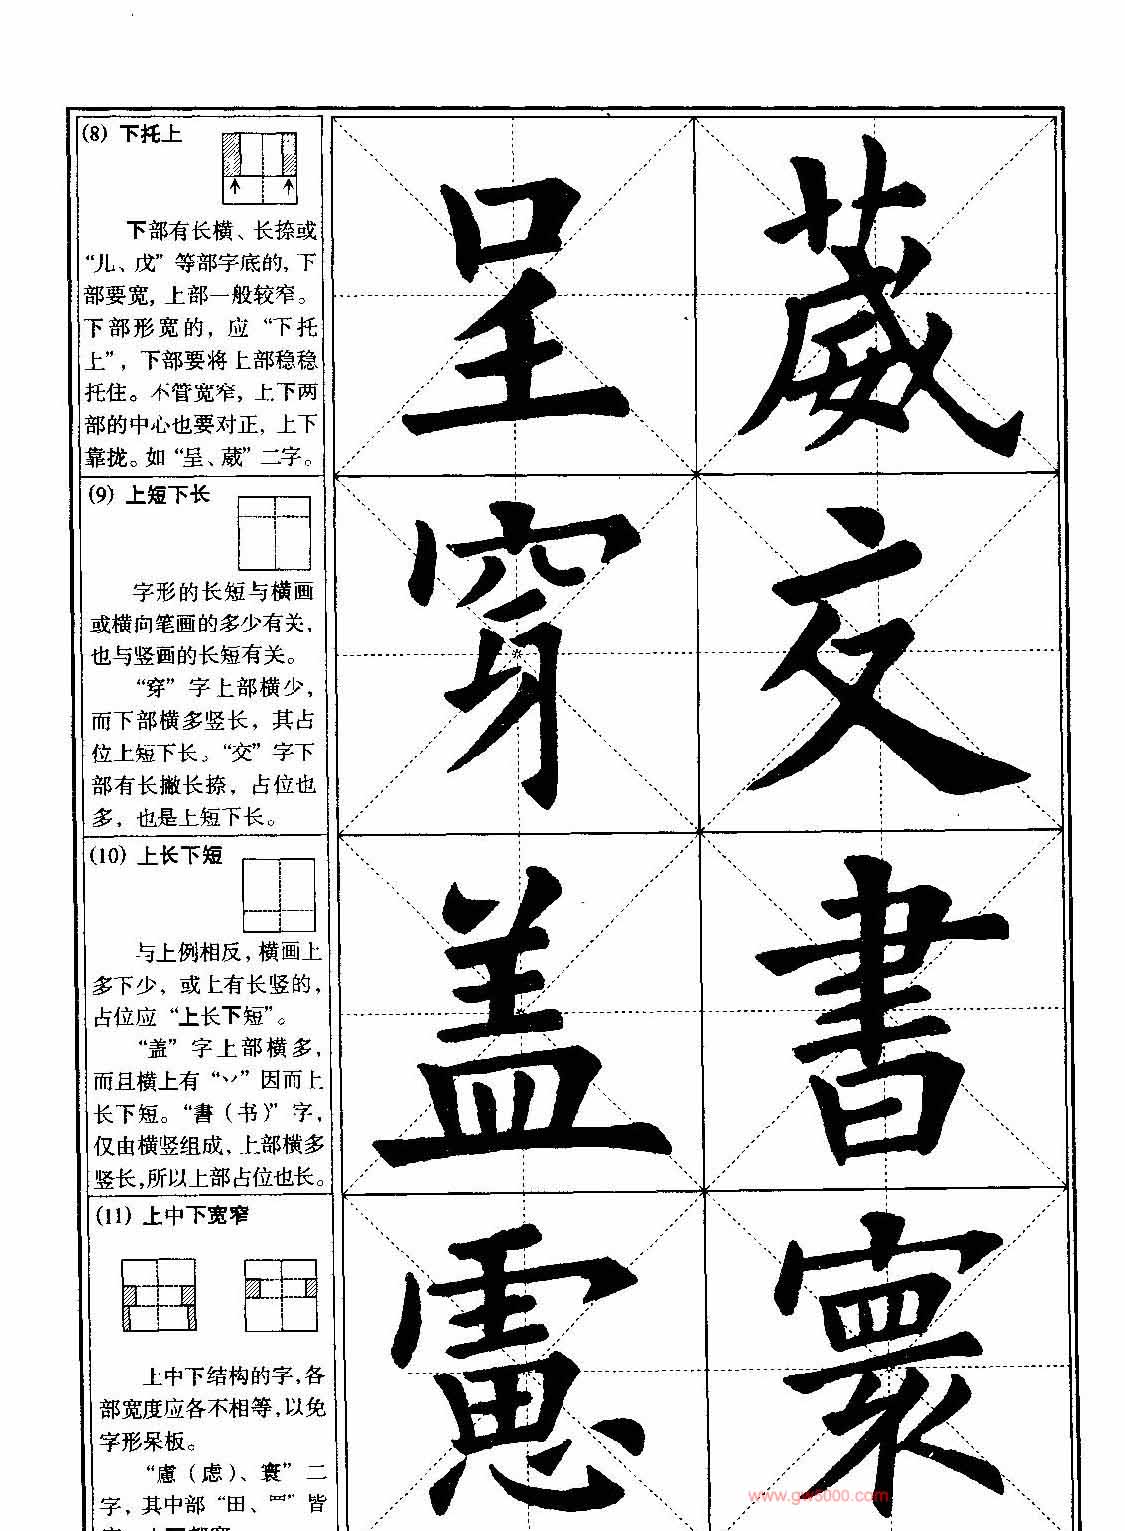 (8) 下托上
下部有长横、长捺或
“儿、戊”等部字底的，下
部要宽，上部一般较窄。
下部形宽的，应“下托
上”，下部要将上部稳稳
托住。不管宽窄，上下两
部的中心也要对正，上下
靠拢。如“呈、葳”二字。
呈 葳
(9) 上短下长
字形的长短与横画
或横向笔画的多少有关，
也与竖画的长短有关。
“穿”字上部横少，
而下部横多竖长，其占
位上短下长。“交”字下
部有长撇长捺，占位也
多，也是上短下长。
穿 交
(10) 上长下短
与上例相反，横画上
多下少，或上有长竖的，
占位应“上长下短”。
“盖”字上部横多，
而且横上有“丷”因而上
长下短。“書（书）”字，
仅由横竖组成，上部横多
竖长，所以上部占位也长。
盖 書
(11) 上中下宽窄
上中下结构的字，各
部宽度应各不相等，以免
字形呆板。
“慮（虑）、寰”二
字，其中部“田、罒”皆
慮 寰
www.gw5000.com